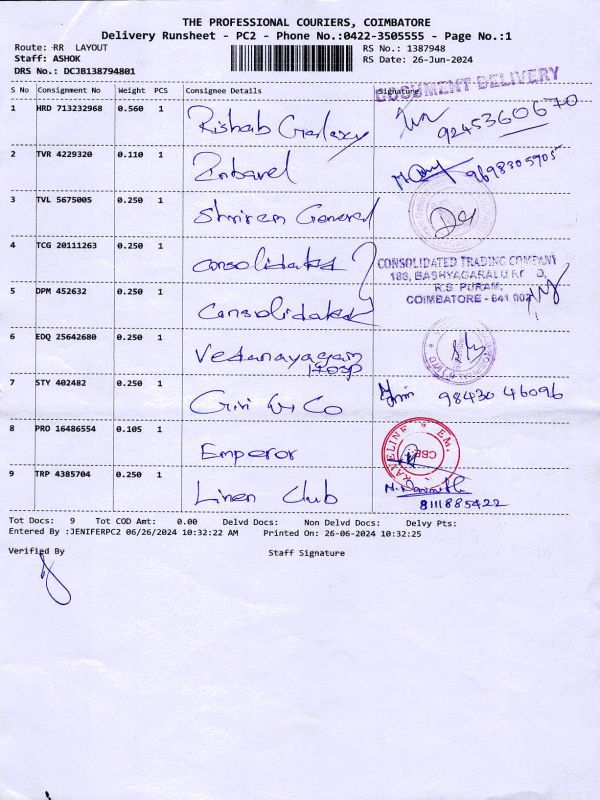 THE PROFESSIONAL COURIERS, COIMBATORE
Delivery Runsheet - PC2 - Phone No.:0422-3505555 - Page No.:1
Route: RR LAYOUT
RS No.: 1387948
Staff: ASHOK
RS Date: 26-Jun-2024
DRS No.: DCJB138794801
DOCUMENT DELIVERY
S No Consignment No Weight PCS Consignee Details Signature
1 HRD 713232968 0.560 1 Rishab Galaxy 9245360670
2 TVR 4229320 0.110 1 9698305905
3 TVL 5675005 0.250 1 Shriram General
4 TCG 20111263 0.250 1 Consolidated
CONSOLIDATED TRADING COMPANY
R.S. PURAM,
COIMBATORE - 641 002
5 DPM 452632 0.250 1 Consolidated
6 EDQ 25642680 0.250 1 Vedanayagam
Hosp
7 STY 402482 0.250 1 Giri & Co 98430 46096
8 PRO 16486554 0.105 1 Emperor
RAVELINE EM.
CBE
9 TRP 4385704 0.250 1 Linen Club
8111885422
Tot Docs: 9 Tot COD Amt: 0.00 Delvd Docs: Non Delvd Docs: Delvy Pts:
Entered By :JENIFERPC2 06/26/2024 10:32:22 AM Printed On: 26-06-2024 10:32:25
Verified By Staff Signature